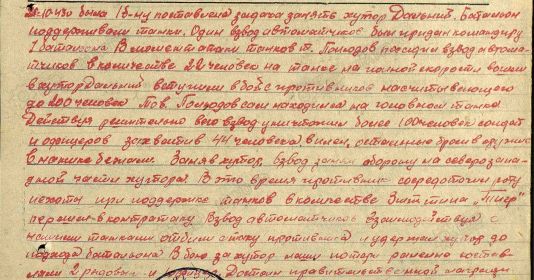 была 1 б-ну поставлена задача занять хутор Дальний. Батальон
поддерживали танки. Один взвод автоматчиков был придан командиру
1 батальона В момент атаки танков т. Походов посадил взвод автома-
тчиков в количестве 22 человек на танке на полной скорости вошли
в хутор Дальний вступили в бой с противником насчитывающего
до 200 человек Тов. Походов сам находился на головном танке
Действуя решительно его взвод уничтожил более 100 человек солдат
и офицеров захватив 44 человека в плен, остальные бросив оружие
в панике бежали. Заняв хутор, взвод занял оборону на северозапа-
дной части хутора. В это время противник сосредоточил роту
пехоты при поддержке танков в количестве 3 шт типа "Тигр"
перешел в контратаку Взвод автоматчиков взаимодействуя с
нашими танками отбили атаку противника и удержал хутор до
подхода батальона В бою за хутор наши потери ранено состав-
ляли 2 рядовых и Достоин правительственной награды